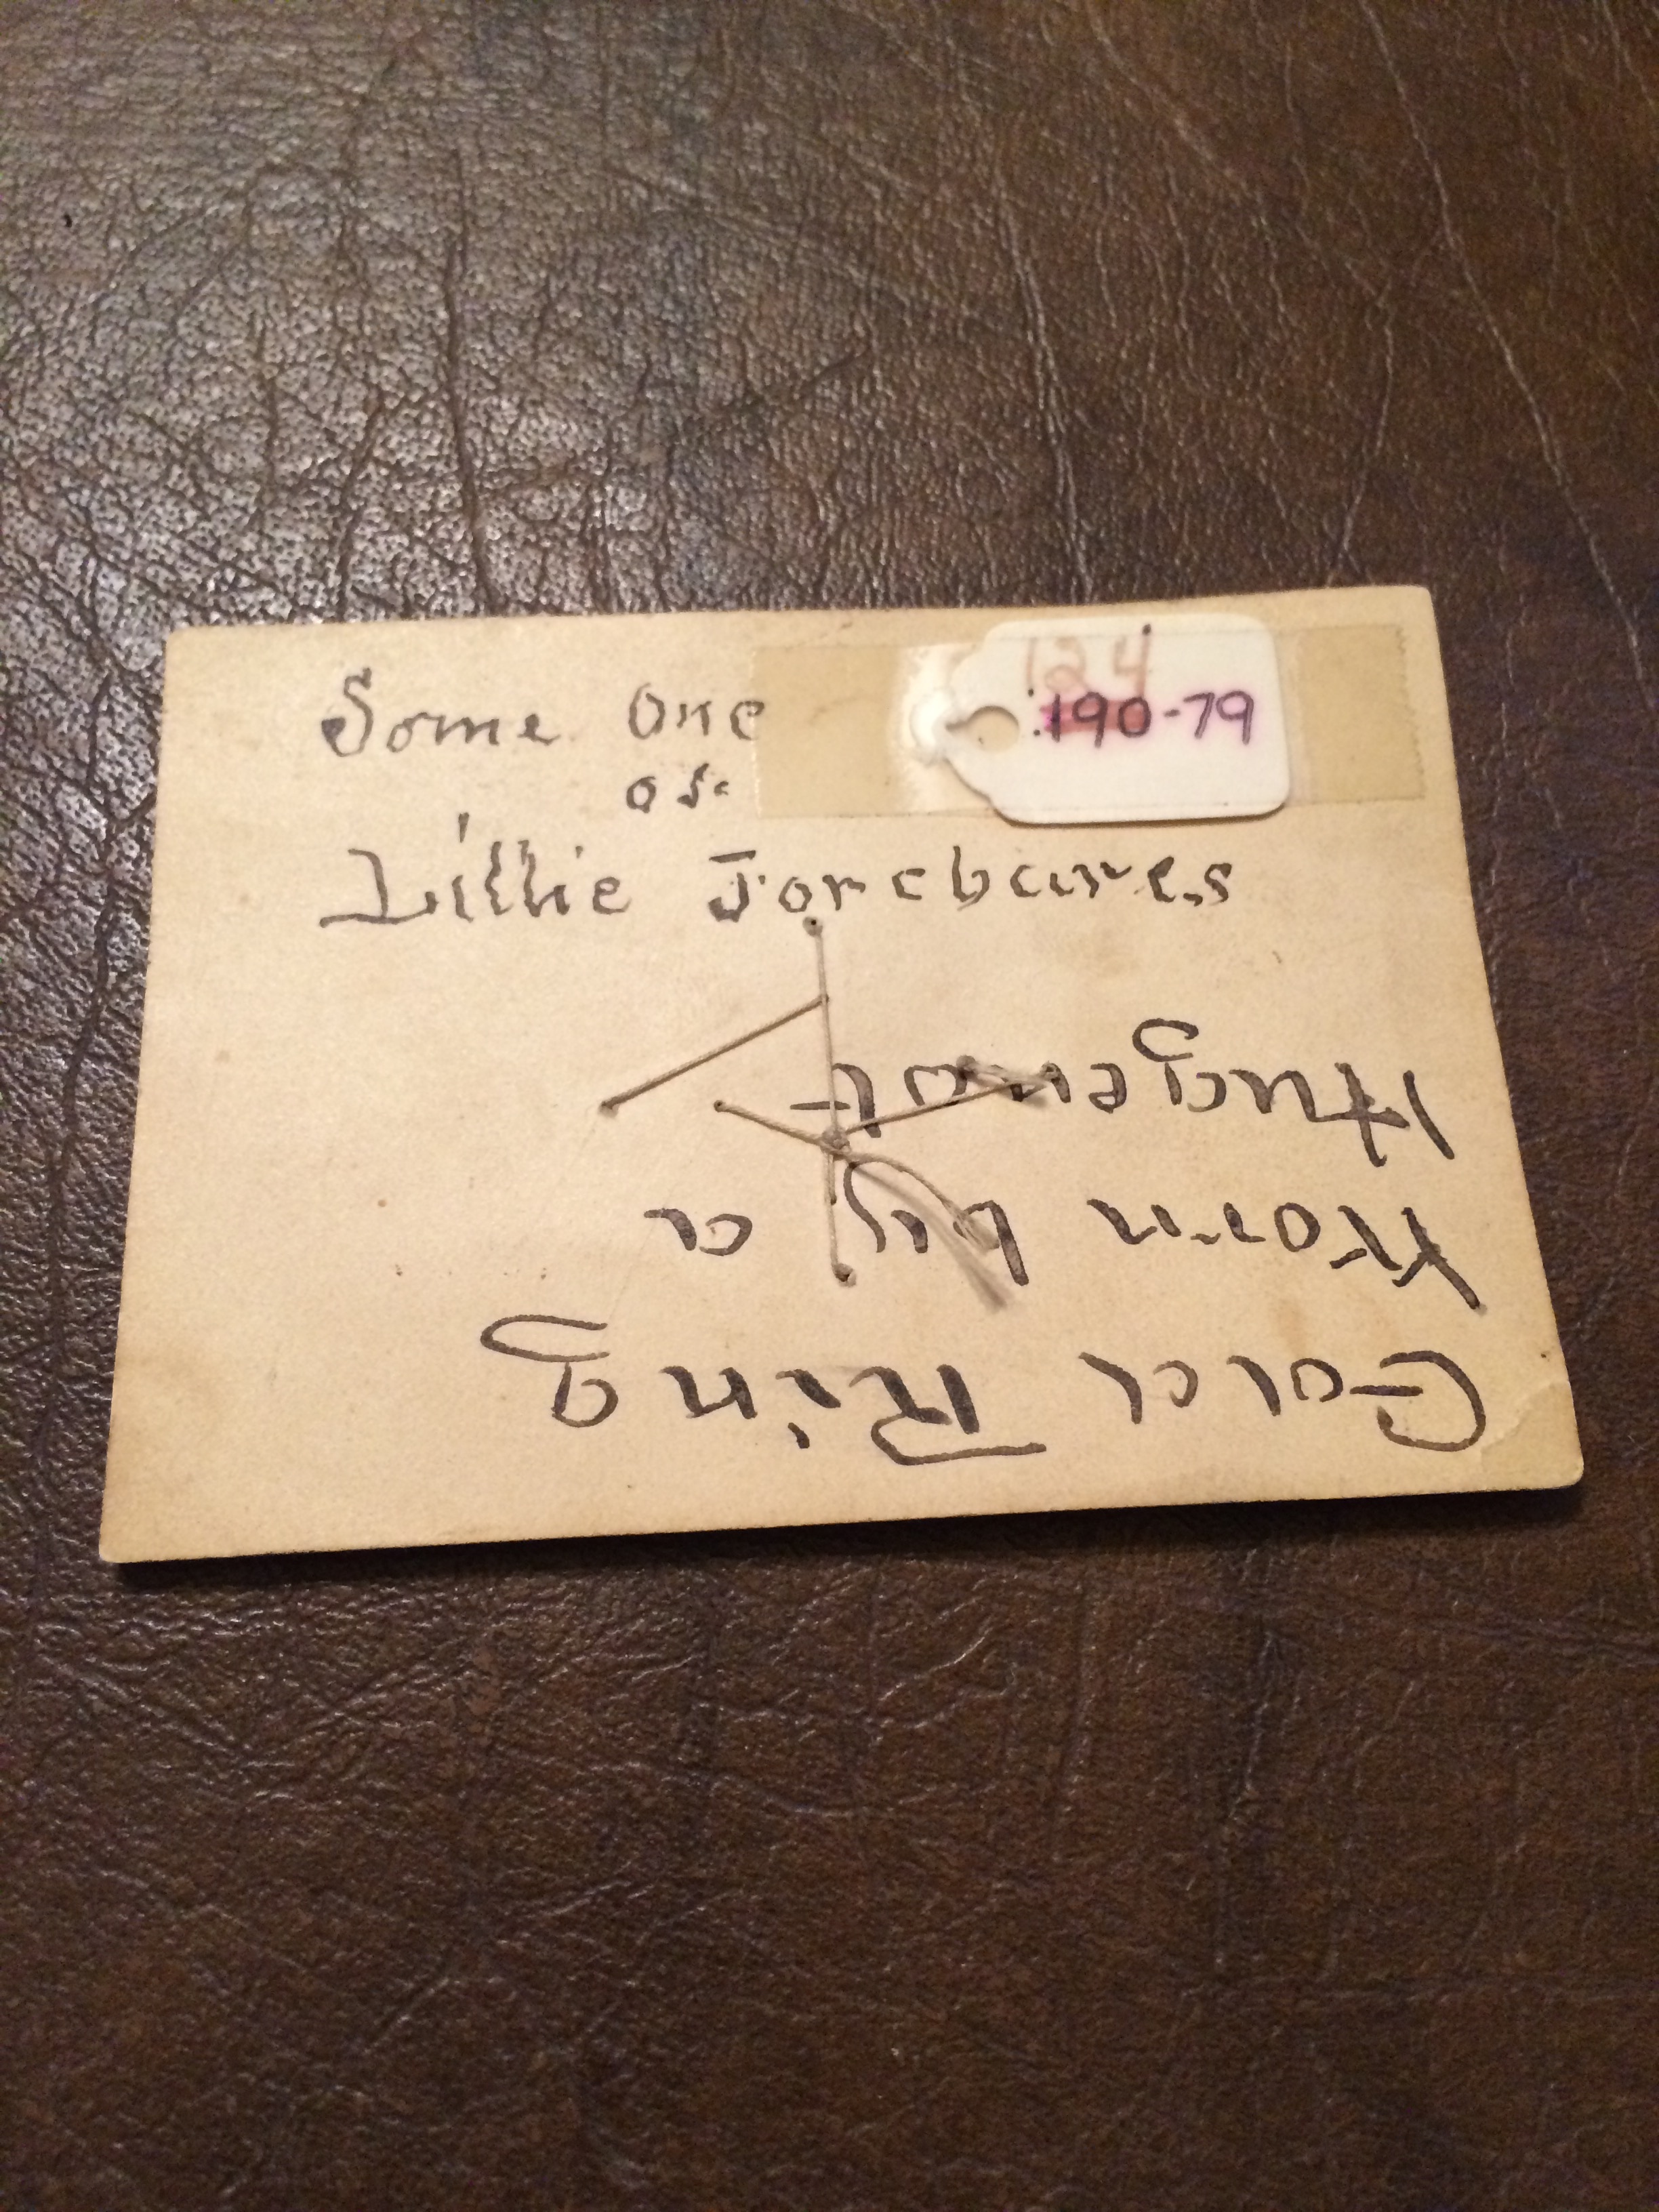 124
190-79
Some one
of
Lillie
Gold Ring
Worn by a
Hugenot